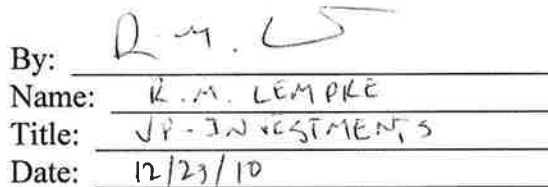 By: R.M. L
Name: R.M. LEMPRE
Title: VP-INVESTMENTS
Date: 12/23/10